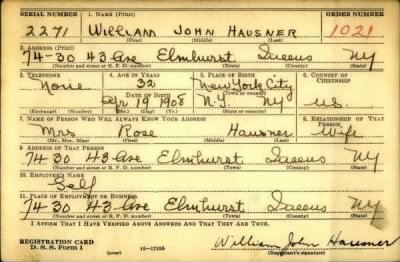 SERIAL NUMBER 1. NAME (Print) ORDER NUMBER
2271 WILLIAM JOHN HAUSNER 1021
(First) (Middle) (Last)
2. ADDRESS (Print)
74-30 43 Ave Elmhurst Queens NY
(Number and street or R. F. D. number) (Town) (County) (State)
3. TELEPHONE 4. AGE IN YEARS 5. PLACE OF BIRTH 6. COUNTRY OF CITIZENSHIP
None 32 New York City
DATE OF BIRTH (Town or county)
Apr 19 1908 N.Y. NY U.S.
(Exchange) (Number) (Mo.) (Day) (Yr.) (State or country)
7. NAME OF PERSON WHO WILL ALWAYS KNOW YOUR ADDRESS 8. RELATIONSHIP OF THAT PERSON
Mrs Rose Hausner Wife
(Mr., Mrs., Miss) (First) (Middle) (Last)
9. ADDRESS OF THAT PERSON
74 30 43 Ave Elmhurst Queens NY
(Number and street or R. F. D. number) (Town) (County) (State)
10. EMPLOYER'S NAME
Self
11. PLACE OF EMPLOYMENT OR BUSINESS
74-30 43 Ave Elmhurst Queens NY
(Number and street or R. F. D. number) (Town) (County) (State)
I AFFIRM THAT I HAVE VERIFIED ABOVE ANSWERS AND THAT THEY ARE TRUE.
REGISTRATION CARD
D. S. S. Form 1 (over) 16-17105 William John Hausner
(Registrant's signature)